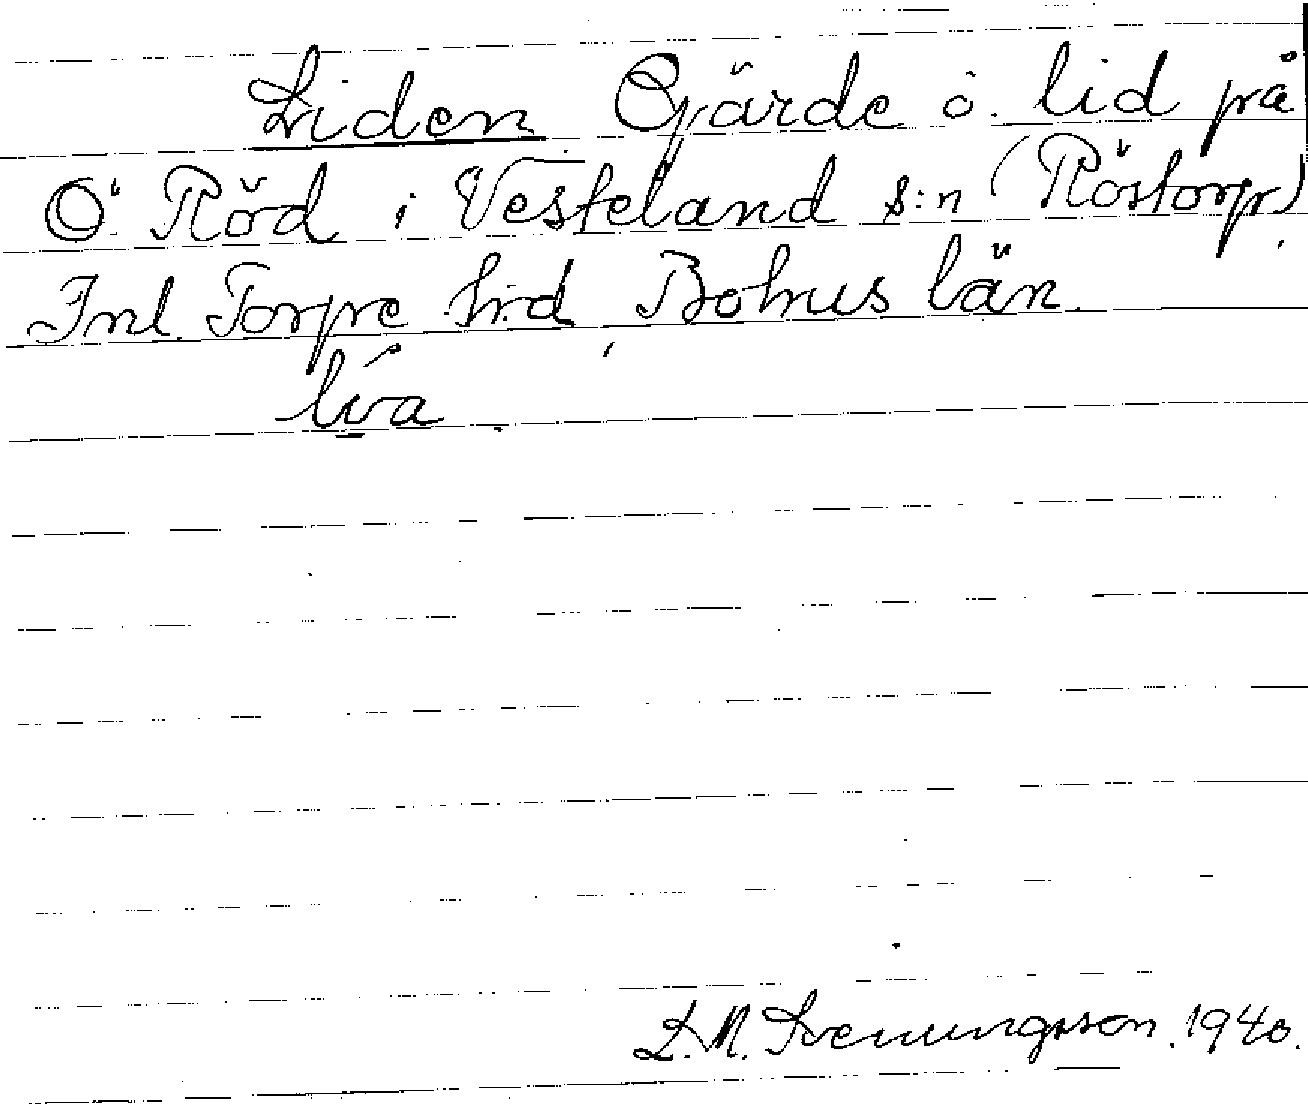 Liden Gjärde o. lid på
Ö. Röd i Vesteland s:n (Röstorp)
Inl. Torpe h:d, Bohus län.
lí̱a
L. N. Svenungsson. 1940.